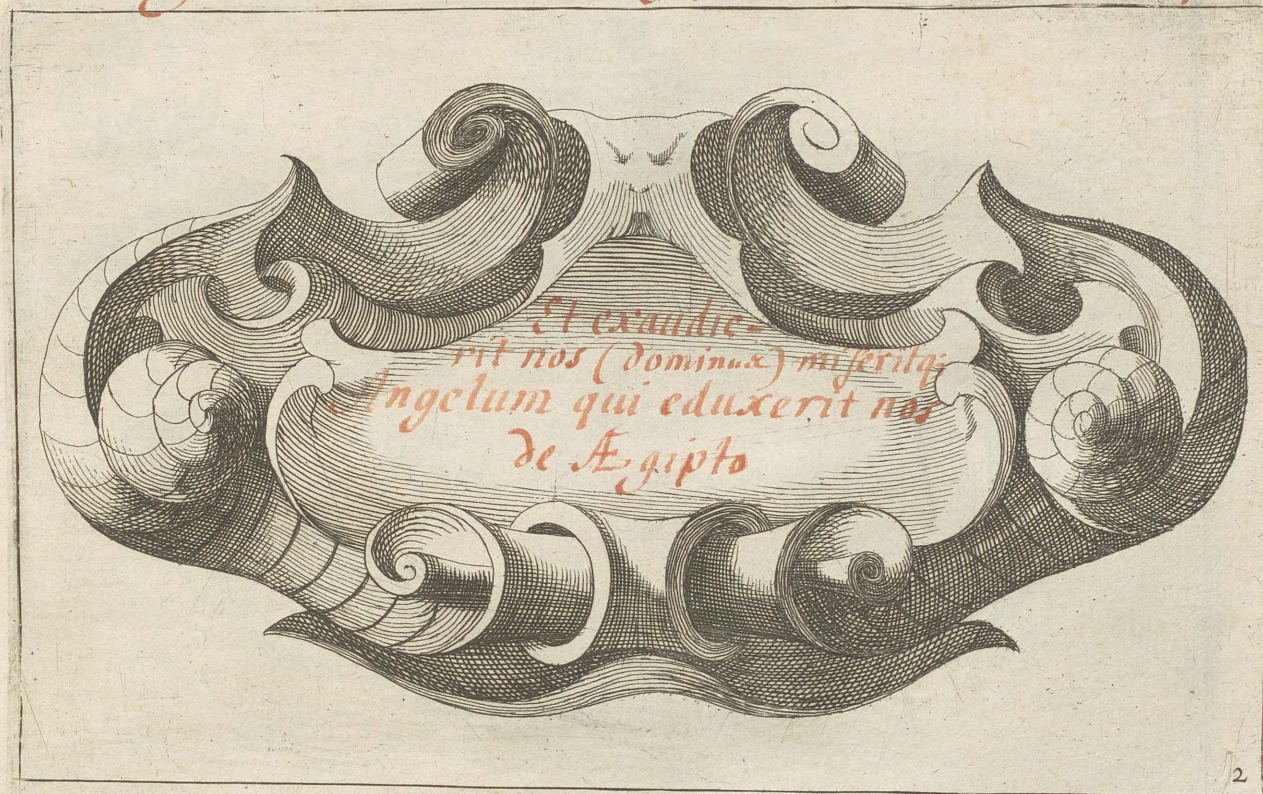 Et exaudie-
rit nos (dominux) miseritq;
Angelum qui eduxerit nos
de Ægipto
2